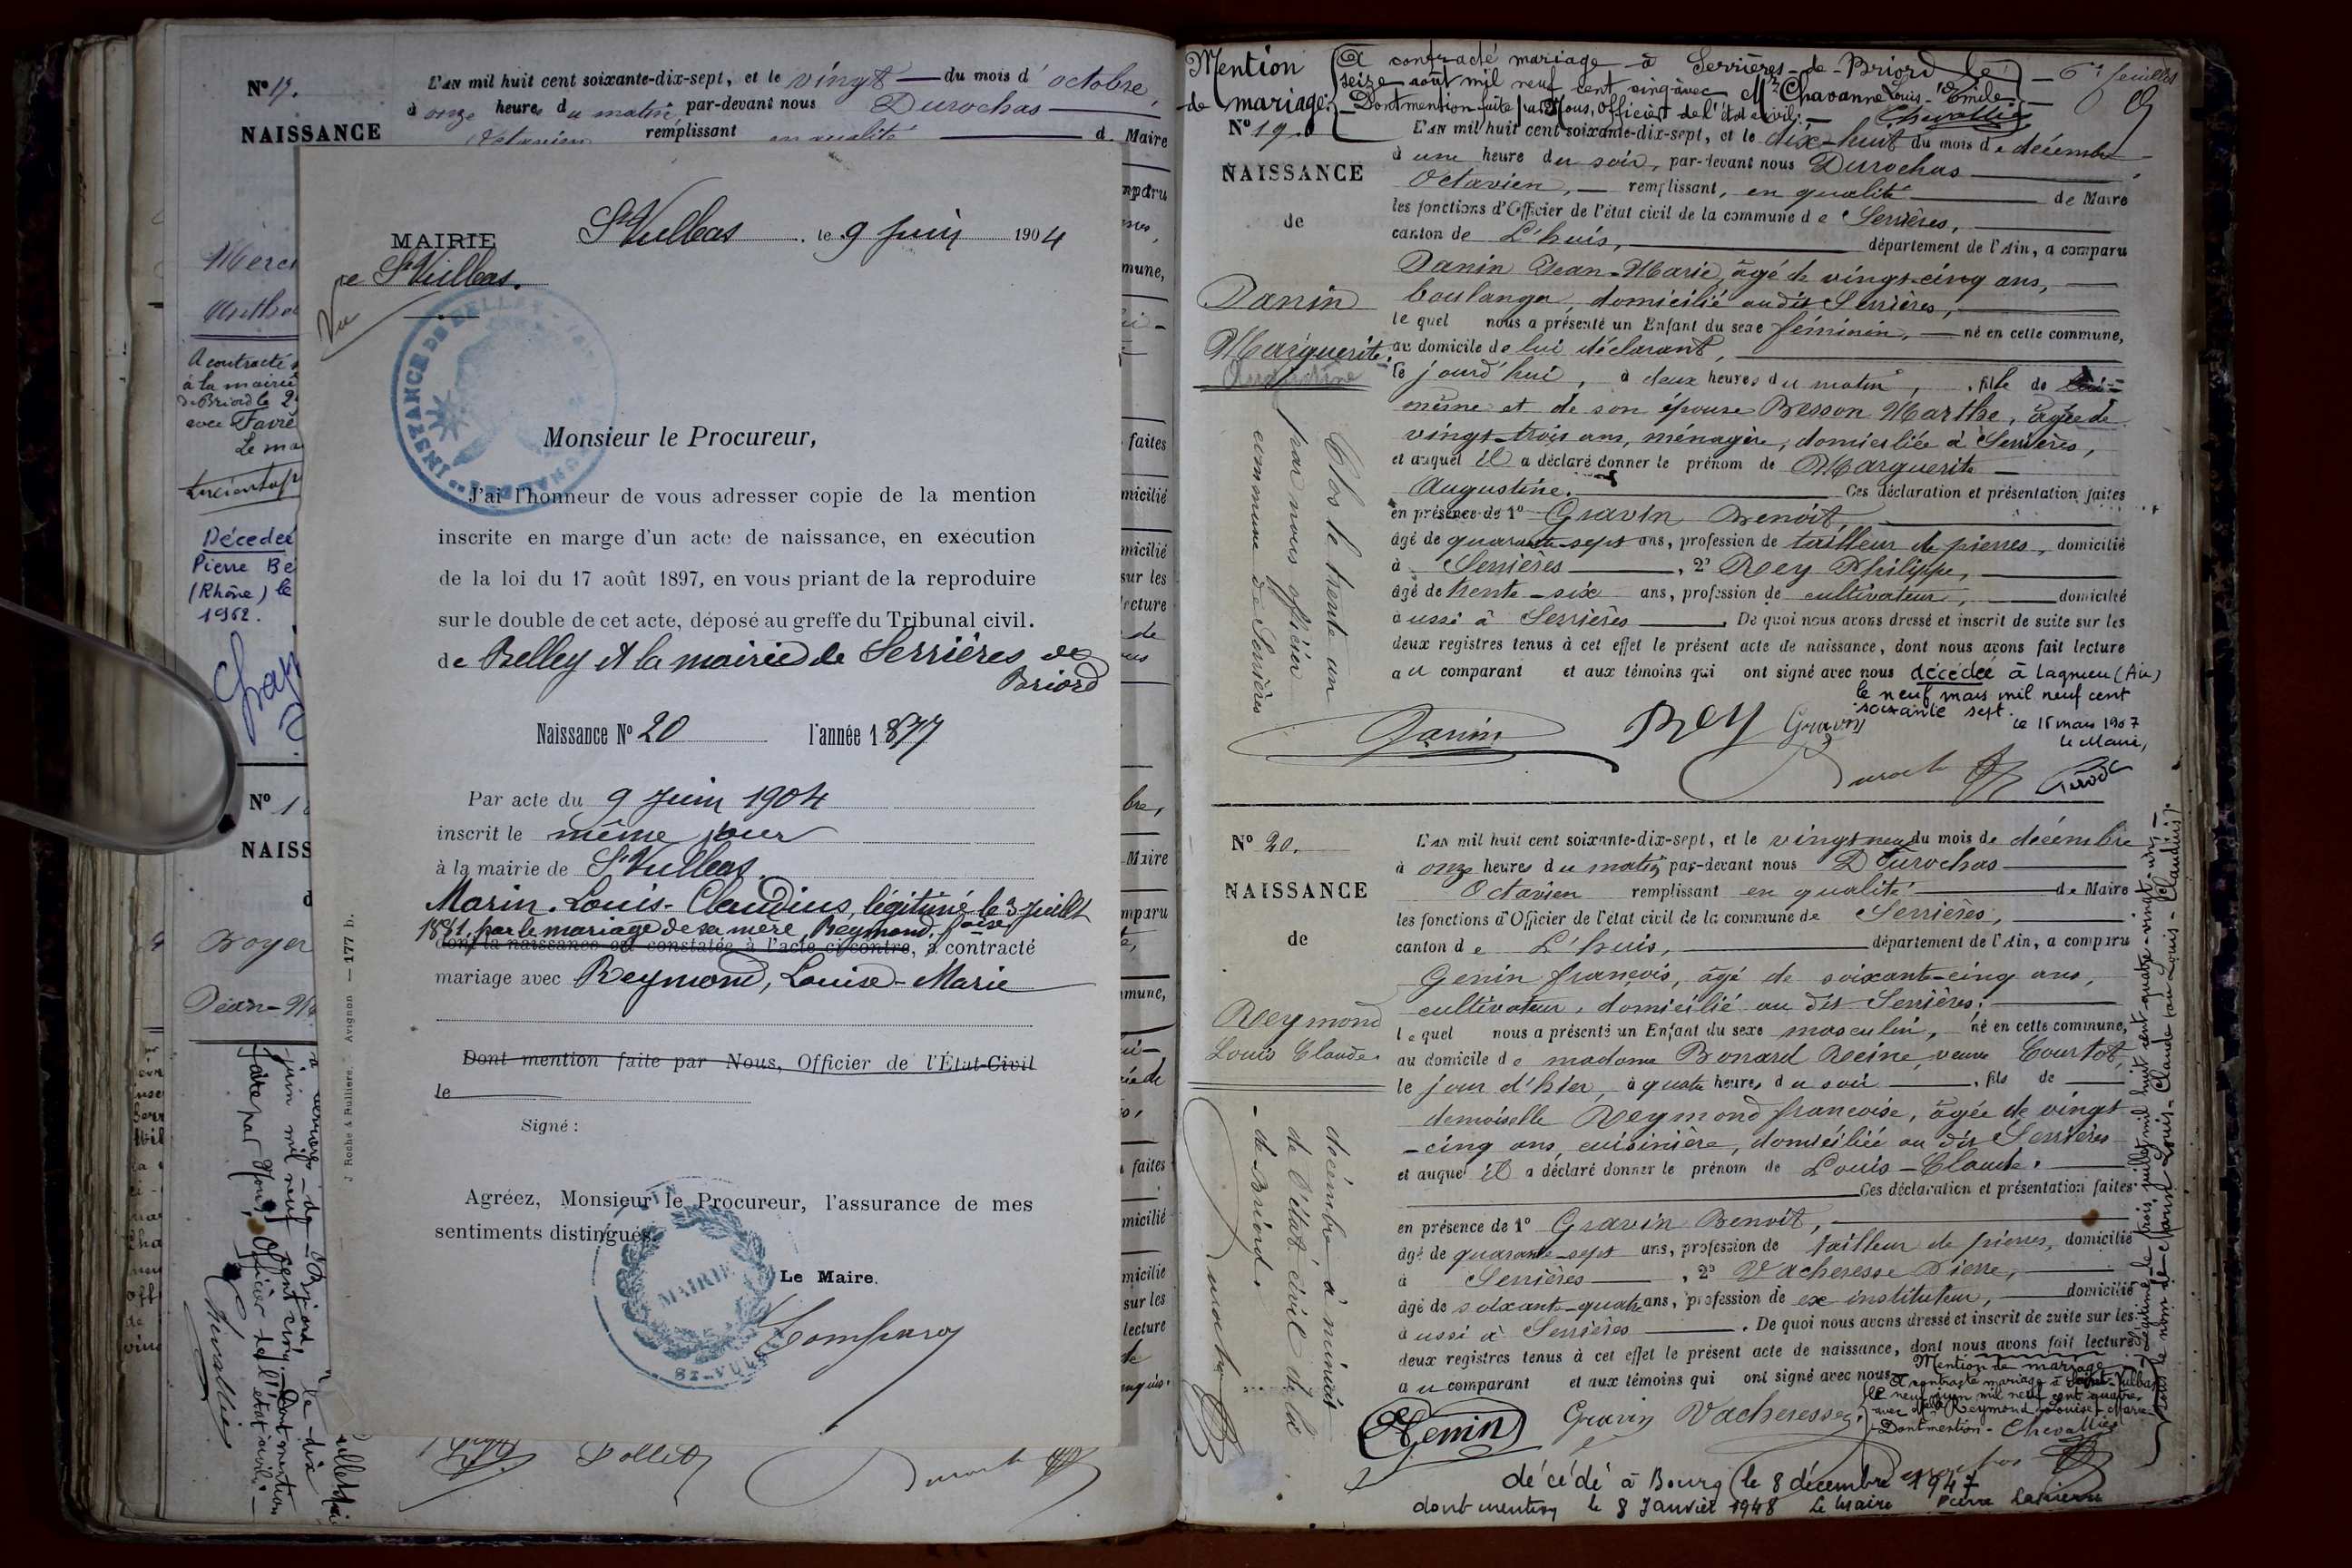 N° 17.
NAISSANCE
L'AN mil huit cent soixante-dix-sept, et le vingt du mois d'octobre,
à onze heures du matin, par-devant nous Durochas
Octavien remplissant en qualité de Maire
Merci
A contracté
à la mairie
de Briord le 2
avec Favre
Le ma
Décédée
Pierre Bé
(Rhône) le
1962.
N° 1
NAISS
d
Boyer
Jean-Ma
MAIRIE
de St Vulbas.
St Vulbas, le 9 Juin 1904
Vu
INSTANCE DE BELLEY
Monsieur le Procureur,
J'ai l'honneur de vous adresser copie de la mention
inscrite en marge d'un acte de naissance, en exécution
de la loi du 17 août 1897, en vous priant de la reproduire
sur le double de cet acte, déposé au greffe du Tribunal civil.
de Belley et la mairie de Serrières de
Briord
Naissance N° 20 l'année 1877
Par acte du 9 Juin 1904
inscrit le même jour
à la mairie de St Vulbas.
Marin, Louis-Claudius, légitimé le 3 juillet
1881, par le mariage de sa mère, Reymond, fçoise
dont la naissance est constatée à l'acte ci-contre, a contracté
mariage avec Reymond, Louise-Marie
Dont mention faite par Nous, Officier de l'État-Civil
le
Signé :
Agréez, Monsieur le Procureur, l'assurance de mes
sentiments distingués.
Le Maire.
MAIRIE
ST-VULBAS
J Roche & Rullière. Avignon — 177 b.
juin mil neuf cent cinq. Dont mention
faite par Nous, Officier de l'état civil. —
Chevallier
mparu
mune,
faites
micilié
micilié
sur les
lecture
de
bre,
Maire
mparu
mune,
faites
micilié
micilié
sur les
lecture
Mention
de mariage:
A contracté mariage à Serrières-de-Briord le
seize août mil neuf cent cinq avec Mr Chavanne Louis-Emile
Dont mention faite par Nous, Officier de l'état civil. —
Chevallier
6e feuillet
N° 19.
NAISSANCE
de
Danin
Marguerite
Augustine
L'AN mil huit cent soixante-dix-sept, et le dix-huit du mois de décembre
à une heure du soir, par-devant nous Durochas
Octavien, remplissant, en qualité de Maire
les fonctions d'Officier de l'état civil de la commune de Serrières,
canton de L'huis, département de l'Ain, a comparu
Danin Jean-Marie, âgé de vingt-cinq ans,
boulanger, domicilié au dit Serrières,
lequel nous a présenté un Enfant du sexe féminin, né en cette commune,
au domicile de lui déclarant,
le jourd'hui, à deux heures du matin, fille de lui-
même et de son épouse Besson Marthe, âgée de
vingt-trois ans, ménagère, domiciliée à Serrières,
et auquel il a déclaré donner le prénom de Marguerite
Augustine. Ces déclaration et présentation faites
en présence de 1° Gravin Benoît,
âgé de quarante-sept ans, profession de tailleur de pierres, domicilié
à Serrières, 2° Rey Philippe,
âgé de trente-six ans, profession de cultivateur, domicilié
aussi à Serrières. De quoi nous avons dressé et inscrit de suite sur les
deux registres tenus à cet effet le présent acte de naissance, dont nous avons fait lecture
au comparant et aux témoins qui ont signé avec nous
décédée à Lagnieu (Ain)
le neuf mars mil neuf cent
soixante sept.
le 15 mars 1967
le Maire,
Danin Rey Gravin
Clos le trente un
par nous officier
commune de Serrières
décembre à minuit
de l'état civil de la
- de Briord.
N° 20.
NAISSANCE
de
Reymond
Louis Claude
L'AN mil huit cent soixante-dix-sept, et le vingt neuf du mois de décembre
à onze heures du matin, par-devant nous Durochas
Octavien remplissant en qualité de Maire
les fonctions d'Officier de l'état civil de la commune de Serrières,
canton de L'huis, département de l'Ain, a comparu
Genin françois, âgé de soixante-cinq ans,
cultivateur, domicilié au dit Serrières,
lequel nous a présenté un Enfant du sexe masculin, né en cette commune,
au domicile de madame Bonard Reine, veuve Courtot,
le jour d'hier, à quatre heures du soir, fils de
demoiselle Reymond françoise, âgée de vingt
-cinq ans, cuisinière, domiciliée au dit Serrières
et auquel il a déclaré donner le prénom de Louis-Claude.
Ces déclaration et présentation faites
en présence de 1° Gravin Benoît,
âgé de quarante-sept ans, profession de tailleur de pierres, domicilié
à Serrières, 2° Vacheresse Pierre,
âgé de soixante-quatre ans, profession de ex instituteur, domicilié
aussi à Serrières. De quoi nous avons dressé et inscrit de suite sur les
deux registres tenus à cet effet le présent acte de naissance, dont nous avons fait lecture
au comparant et aux témoins qui ont signé avec nous
Mention de mariage
A contracté mariage à Saint-Vulbas
le neuf juin mil neuf cent quatre
avec Delle Reymond Louise Marie
Dont mention - Chevallier
Genin Gravin Vacheresse
Légitimé le trois juillet mil huit cent quatre-vingt-un —
sous le nom de Marin Louis-Claude ou Louis-Claudius.
décédé à Bourg le 8 décembre 1947
dont mention le 8 Janvier 1948 Le Maire